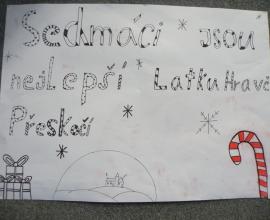 Sedmáci jsou
nejLepší Laťku Hravě
Přeskočí